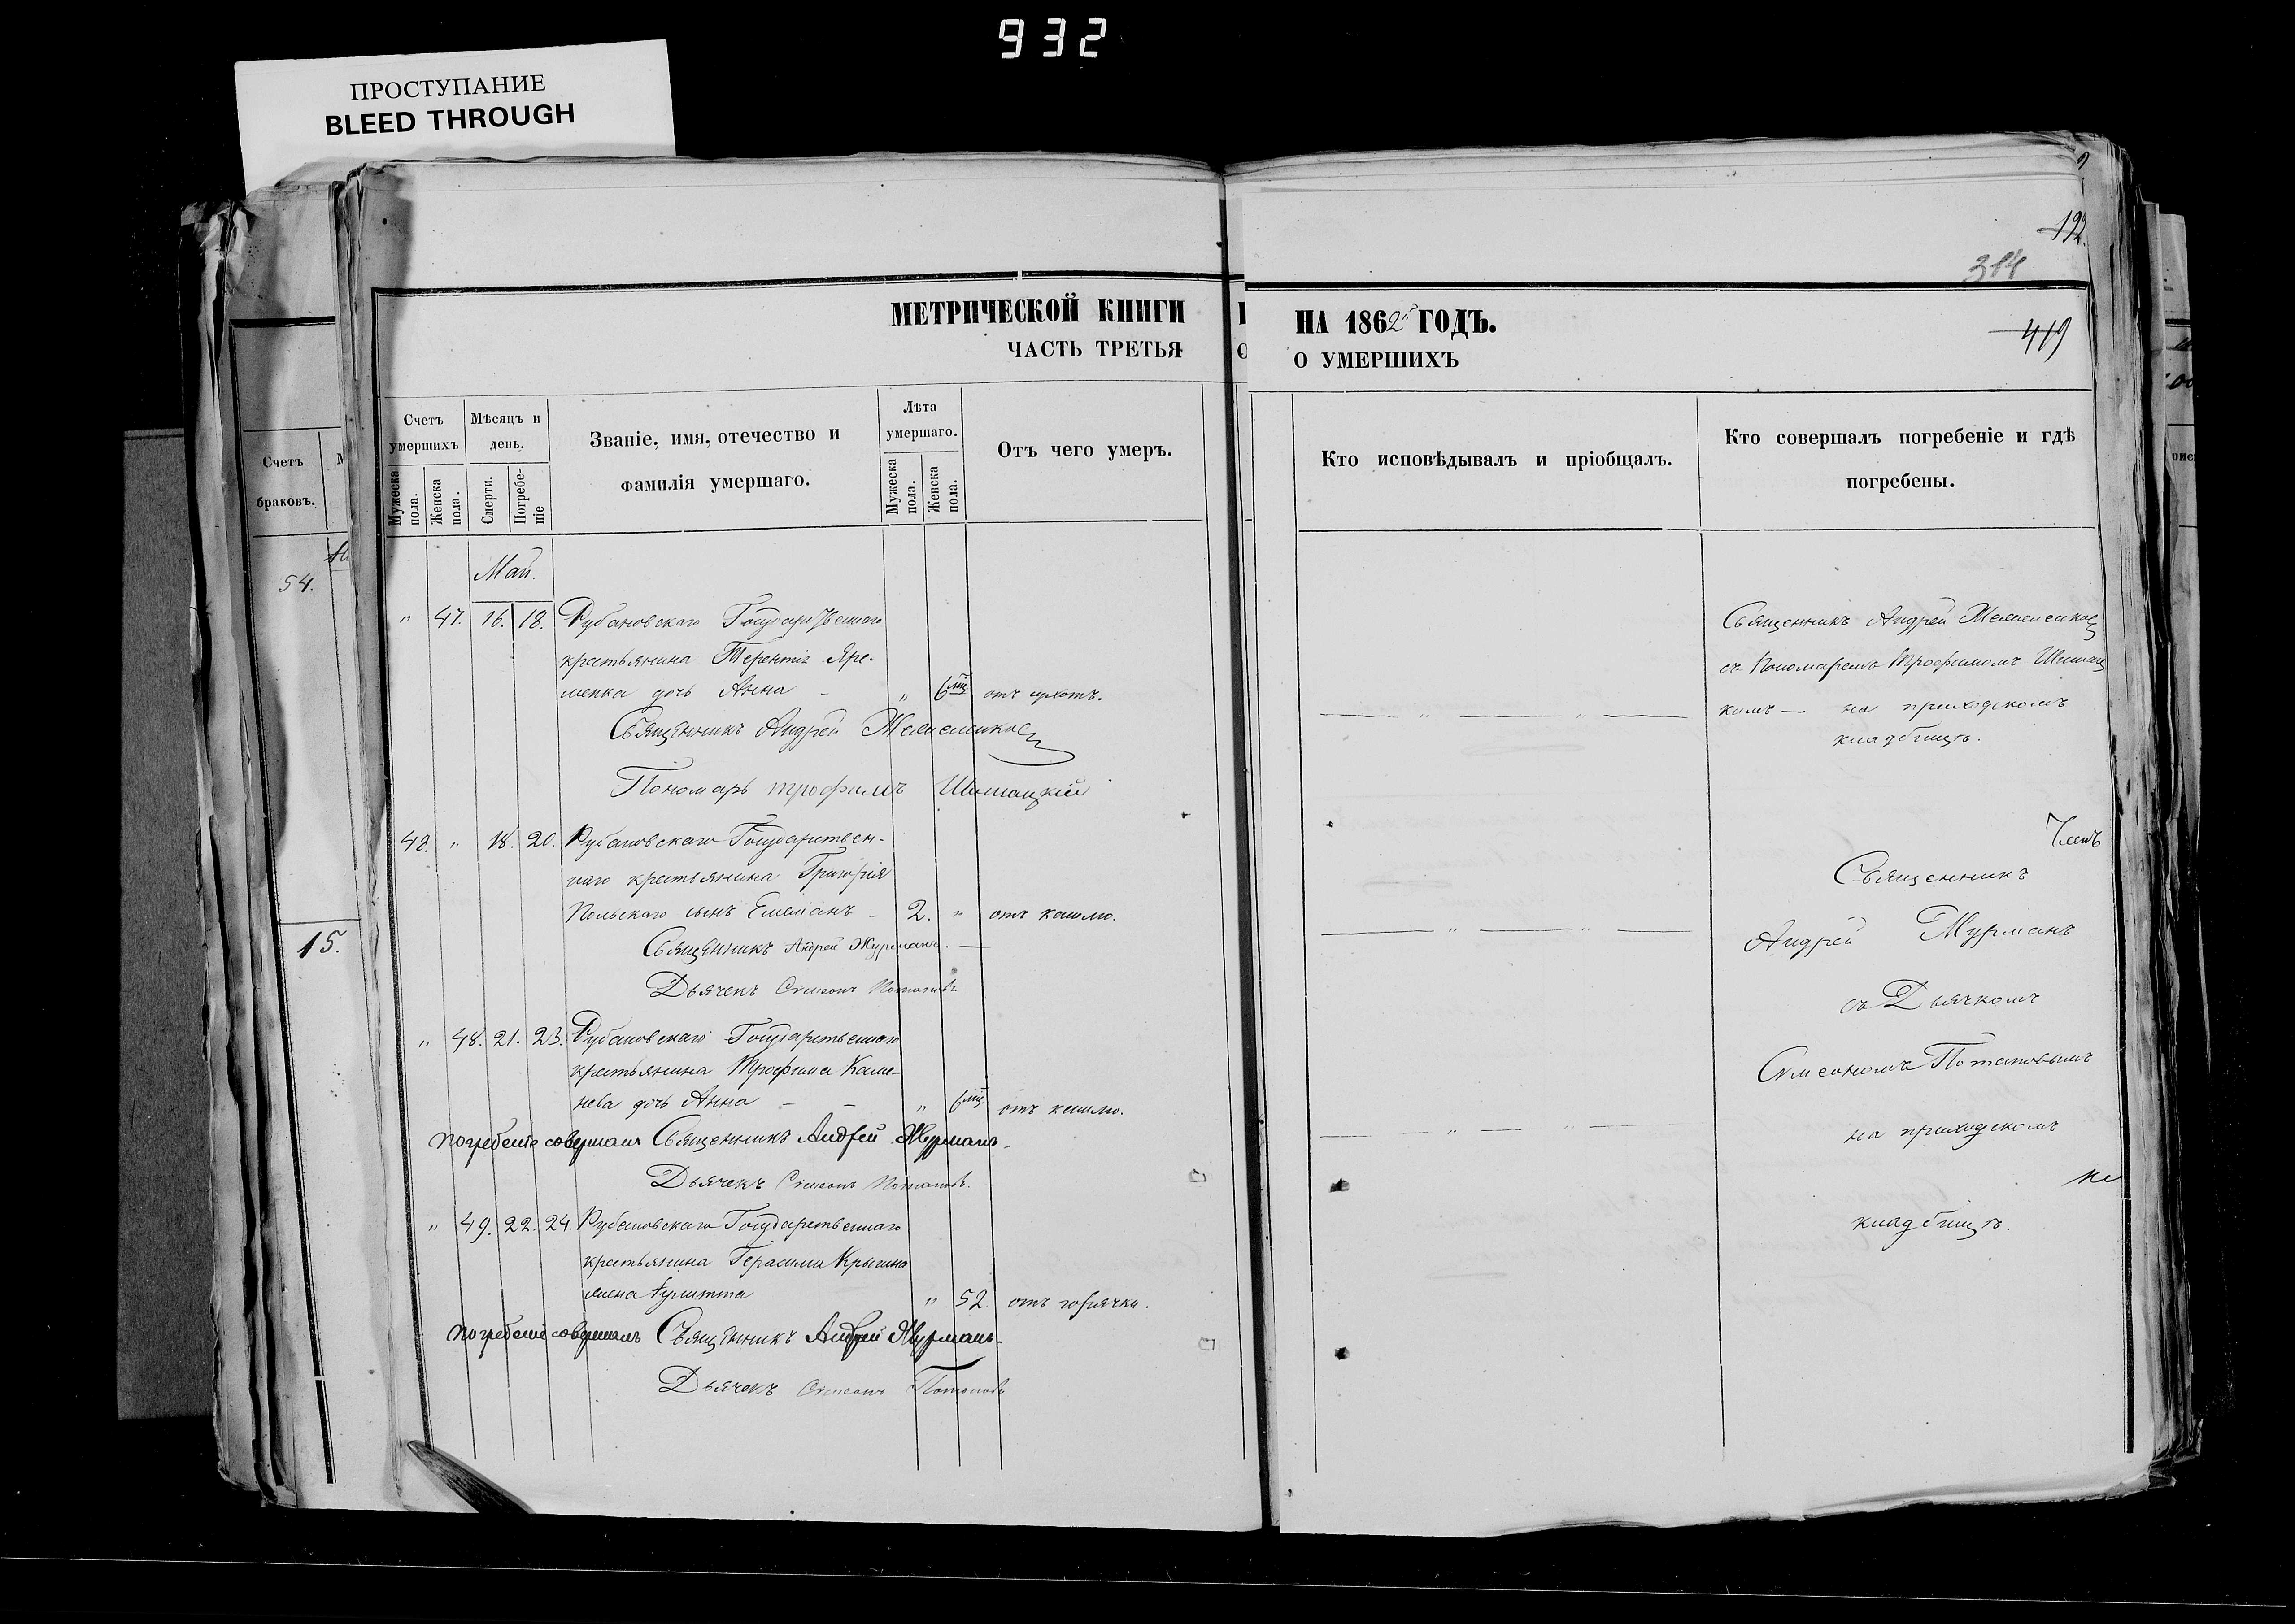 932
ПРОСТУПАНИЕ
BLEED THROUGH
192.
314
419
МЕТРИЧЕСКОЙ КНИГИ
НА 1862й ГОДЪ.
ЧАСТЬ ТРЕТЬЯ
О УМЕРШИХЪ
Счетъ
браковъ.
54.
15.
Счетъ
умершихъ
Мужеска
пола.
Женска
пола.
Мѣсяцъ и
день.
Смерти.
Погребе-
ніе
Званіе, имя, отечество и
фамилія умершаго.
Лѣта
умершаго.
Мужеска
пола.
Женска
пола.
Отъ чего умеръ.
Кто исповѣдывалъ и пріобщалъ.
Кто совершалъ погребеніе и гдѣ
погребены.
Май.
" 47. 16. 18. Рубановскаго Государственнаго
крестьянина Терентія Яре-
менка дочь Анна - " 6 мц.
Священникъ Андрей
Пономарь Трофимъ Шишацкій
42. " 18. 20. Рубановскаго Государствен-
наго крестьянина Григорія
Польскаго сынъ Емеліанъ - 2. " отъ кашлю.
Священникъ Андрей Журманъ.
Дьячекъ Симеонъ Потаповъ
" 48. 21. 23. Рубановскаго Государственнаго
крестьянина Трофима Каме-
нева дочь Анна - - " 6 мц. отъ кашлю.
погребеніе совершалъ Священникъ Андрей Журманъ.
Дьячекъ Симеонъ Потаповъ.
" 49. 22. 24. Рубановскаго Государственнаго
крестьянина Герасима
жена " 52. отъ горячки.
погребеніе совершалъ Священникъ Андрей Журманъ.
Дьячекъ Симеонъ Потаповъ
Священникъ Андрей
съ Пономаремъ Трофимомъ Шишац
кимъ — на приходскомъ
кладбищѣ.
Членъ
Священникъ
Андрей Журманъ
съ Дьячкомъ
Симеономъ Потаповымъ
на приходскомъ
кладбищѣ.